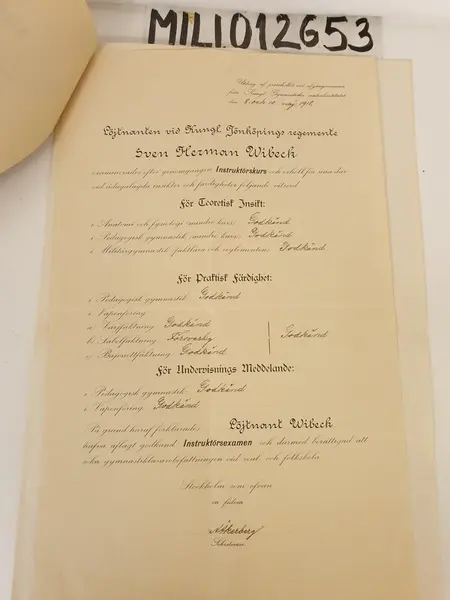 MILI012653
Utdrag af protokollet vid afgångsexamen
från Kungl. Gymnastiska centralinstitutet
den 8 och 10 maj 1918.
Löjtnanten vid Kungl. Jönköpings regemente
Sven Herman Wibeck
examinerades efter genomgången Instruktörskurs och erhöll för sina där
vid ådagalagda insikter och färdigheter följande vitsord
För Teoretisk Insikt:
i Anatomi och fysiologi mindre kurs: Godkänd
i Pedagogisk gymnastik mindre kurs: Godkänd
i Militärgymnastik fäktlära och reglementen: Godkänd
För Praktisk Färdighet:
i Pedagogisk gymnastik Godkänd
i Vapenföring
a) Värjfäktning Godkänd
b) Sabelfäktning Försvarlig Godkänd
c) Bajonettfäktning Godkänd
För Undervisnings Meddelande:
i Pedagogisk gymnastik Godkänd
i Vapenföring Godkänd
På grund häraf förklarades Löjtnant Wibeck
hafva aflagt godkänd Instruktörsexamen och därmed berättigad att
söka gymnastiklärarebefattningen vid real- och folkskola
Stockholm som ofvan
in fidem
Åkerberg
Sekreterare